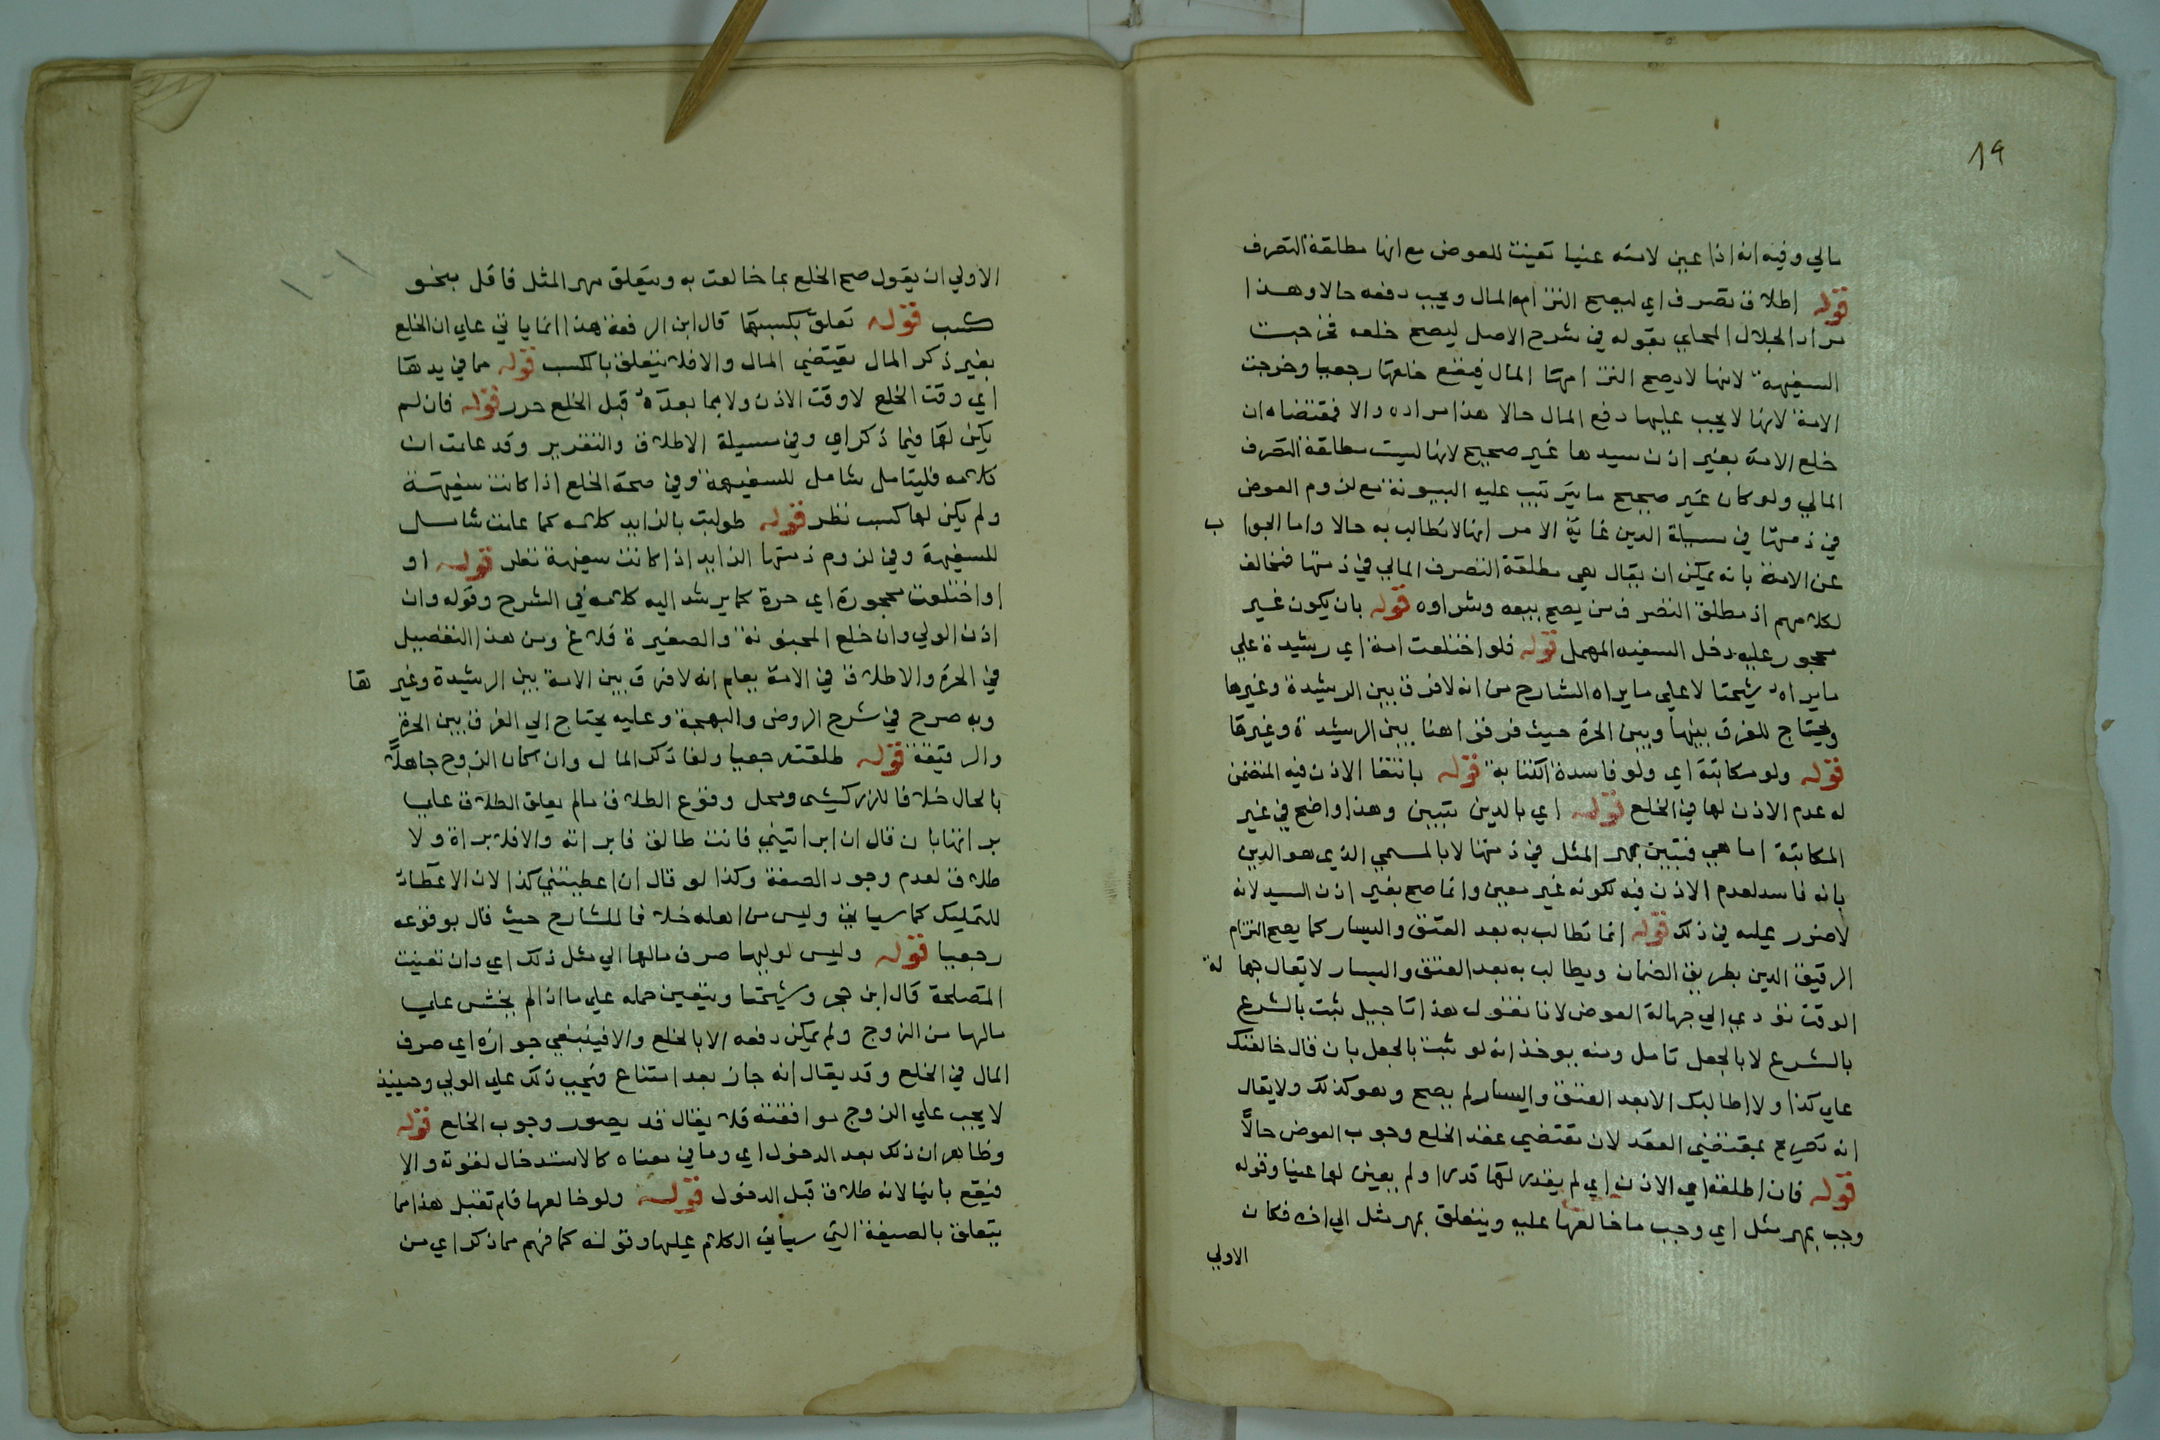 ١٩
مالي وفيه انه اذا عين لامته عينا تعينت للعوض مع انها مطلقة التصرف
قوله إطلاق تصرف اي ليصح التزامه المال ويجب دفعه حالا وهذا
مراد الجلال المحلي بقوله في شرح الاصل ليصح خلعه فخرجت
السفيهة لانها لا يصح التزامها المال فيقع خلعها رجعيا وخرجت
الامة لانها لا يجب عليها دفع المال حالا هذا مراده والا فمقتضاه ان
خلع الامة بغير اذن سيدها غير صحيح لانها ليست مطلقة التصرف
المالي ولو كان غير صحيح ما يترتب عليه البينونة مع لزوم العوض
في ذمتها في مسيلة الدين غاية الامر انها لا تطالب به حالا واما الجواب
عن الامة بانه يمكن ان يقال هي مطلقة التصرف المالي في ذمتها فمخالف
لكلامهم اذ مطلق التصرف من يصح بيعه وشراوه قوله بان يكون غير
محجور عليه دخل السفيه المهمل قوله فلو اختلعت امة اي رشيدة علي
ما يراه شيخنا لا علي ما يراه الشارح من انه لا فرق بين الرشيدة وغيرها
ويحتاج للفرق بينها وبين الحرة حيث فرقوا هنا بين الرشيدة وغيرها
قوله ولو مكاتبة اي ولو فاسدة الكتابة قوله بانتفا الاذن فيه المتضمن
له عدم الاذن لها في الخلع قوله اي بالدين تبين وهذا واضح في غير
المكاتبة اما هي فتبين بمهر المثل في ذمتها لا بالمسمي الذي هو الدين
بانه فاسد لعدم الاذن فيه لكونه غير معين وانما صح بغير اذن السيد لانه
لا ضرر عليه في ذلك قوله انما تطالب به بعد العتق واليسار كما يصح التزام
الرقيق الدين بطريق الضمان ويطالب به بعد العتق واليسار لا يقال جهالة
الوقت تؤدي الي جهالة العوض لانا نقول هذا تاجيل ثبت بالشرع
بالشرع لا بالجعل تامل ومنه يوخذ انه لو ثبت بالجعل بان قال خالعتك
علي كذا ولا اطالبك الا بعد العتق واليسار لم يصح وهو كذلك ولا يقال
انه تصريح بمقتضي العقد لان مقتضي عقد الخلع وجوب العوض حالاً
قوله فان اطلقه اي الاذن اي لم يقدر لها قدرا ولم يعين لها عينا وقوله
وجب بمهر مثل اي وجب ما خالعها عليه ويتعلق بمهر مثل الي اخره فكان
الاولي
الاولي ان يقول صح الخلع بما خالعت به ويتعلق مهر المثل فاقل بنحو
كسب قوله تعلق بكسبها قال ابن الرفعة هذا انما ياتي علي ان الخلع
بغير ذكر المال يقتضي المال والا فلا يتعلق بالكسب قوله مما في يدها
اي وقت الخلع لا وقت الاذن ولا بما بعده قبل الخلع حرر قوله فان لم
يكن لها فيما ذكر اي وفي مسيلة الاطلاق والتقرير وقد علمت ان
كلامه فليتامل شامل للسفيهة وفي صحة الخلع اذا كانت سفيهة
ولم يكن لها كسب نظر قوله طولبت بالزايد كلامه كما علمت شامل
للسفيهة وفي لزوم ذمتها الزايد اذا كانت سفيهة نظر قوله او
او اختلعت محجورة اي حرة كما يرشد اليه كلامه في الشرح وقوله وان
اذن الولي وان خلع المجنونة والصغيرة فلاغ ومن هذا التفصيل
في الحرة والاطلاق في الامة يعلم انه لا فرق بين الامة بين الرشيدة وغيرها
وبه صرح في شرح الروض والبهجة وعليه يحتاج الي الفرق بين الحرة
والرقيقة قوله طلقت رجعيا ولغا ذكر المال وان كان الزوج جاهلاً
بالحال خلافا للزركشي ومحل وقوع الطلاق مالم يعلق الطلاق علي
براتها بان قال ان ابراتيني فانت طالق فابراته والا فلا براة ولا
طلاق لعدم وجود الصفة وكذا لو قال ان اعطيتني كذا لان الاعطا
للتمليك كما سياتي وليس من اهله خلافا للشارح حيث قال بوقوعه
رجعيا قوله وليس لوليها صرف مالها الي مثل ذلك اي وان تعينت
المصلحة قال ابن حجر وشيخنا ويتعين حمله علي ما اذا لم يخش علي
مالها من الزوج ولم يمكن دفعه الا بالخلع والا فينبغي جوازه اي صرف
المال في الخلع وقد يقال انه جاز بعد امتناع فيجب ذلك علي الولي وحينيذ
لا يجب علي الزوج موافقته فلا يقال قد يصور وجوب الخلع قوله
وظاهر ان ذلك بعد الدخول اي وما في معناه كالاستدخال لقوته والا
فيقع باينا لانه طلاق قبل الدخول قوله ولو خالعها فلم تقبل هذا مما
يتعلق بالصيغة التي سياتي الكلام عليها وقوله كما فهم مما ذكر اي من